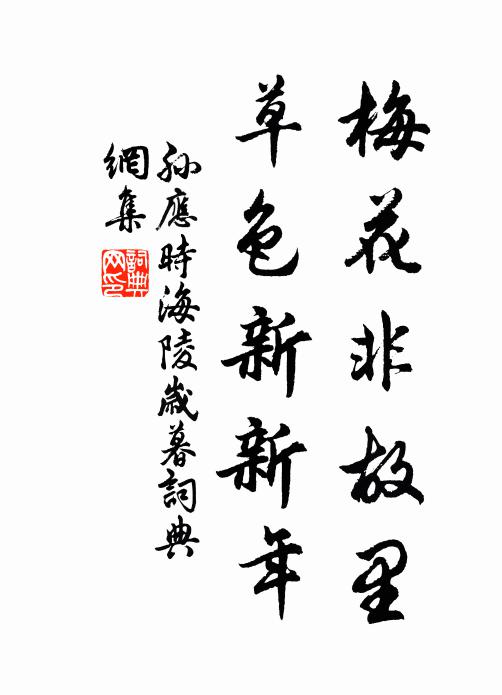 梅花非故里
草色新新年
孫應時海陵歲暮詞典
網集
詞典
网印